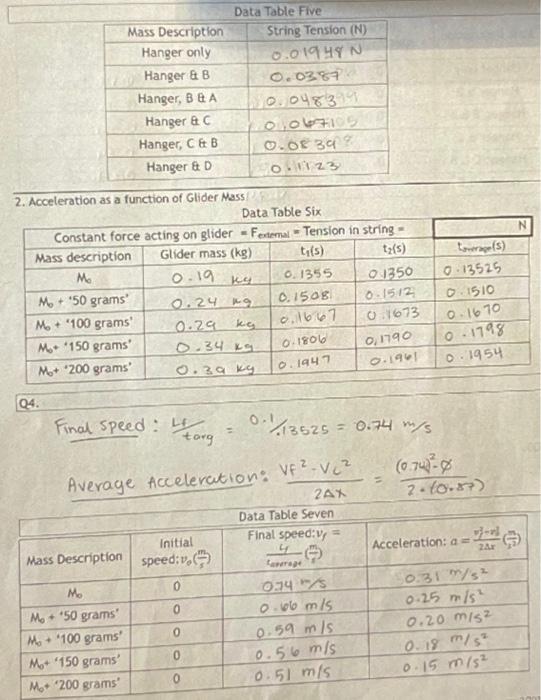 Data Table Five
Mass Description String Tension (N)
Hanger only 0.01948 N
Hanger & B 0.0387
Hanger, B & A 0.048399
Hanger & C 0.067105
Hanger, C & B 0.08398
Hanger & D 0.1123
2. Acceleration as a function of Glider Mass
Data Table Six
Constant force acting on glider = Fexternal = Tension in string = N
Mass description Glider mass (kg) t₁(s) t₂(s) taverage(s)
M₀ 0.19 kg 0.1355 0.1350 0.13525
M₀ + '50 grams' 0.24 kg 0.1508 0.1512 0.1510
M₀ + '100 grams' 0.29 kg 0.1667 0.1673 0.1670
M₀+ '150 grams' 0.34 kg 0.1806 0,1790 0.1798
M₀+ '200 grams' 0.39 kg 0.1947 0.1961 0.1954
Q4.
Final speed: Lf/tavg = 0.1/.13525 = 0.74 m/s
Average Acceleration: VF²-Vi²/2ΔX = (0.74)²-0/2.(0.87)
Data Table Seven
Mass Description Initial speed: v₀(m/s) Final speed: vf = Lf/taverage (m/s) Acceleration: a = vf²-v₀²/2Δx (m/s²)
M₀ 0 0.74 m/s 0.31 m/s²
M₀ + '50 grams' 0 0.66 m/s 0.25 m/s²
M₀ + '100 grams' 0 0.59 m/s 0.20 m/s²
M₀+ '150 grams' 0 0.56 m/s 0.18 m/s²
M₀+ '200 grams' 0 0.51 m/s 0.15 m/s²